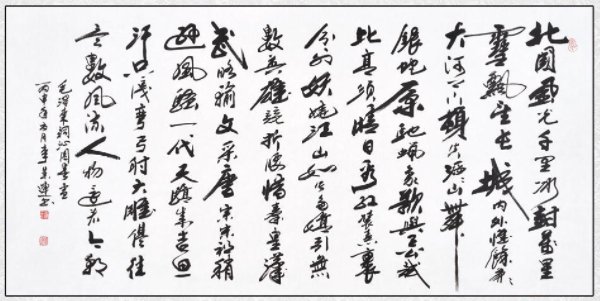 北國風光千里冰封萬里
雪飄望長城内外惟餘莽々
大河上下頓失滔々山舞
銀蛇原馳蠟象欲與天公試
比高須晴日看紅裝素裹
分外妖嬈江山如此多嬌引無
數英雄競折腰惜秦皇漢
武略輸文采唐宗宋祖稍
遜風騷一代天驕成吉思
汗只識彎弓射大雕俱往
矣數風流人物還看今朝
毛澤東詞沁園春雪
丙申年 月李 書